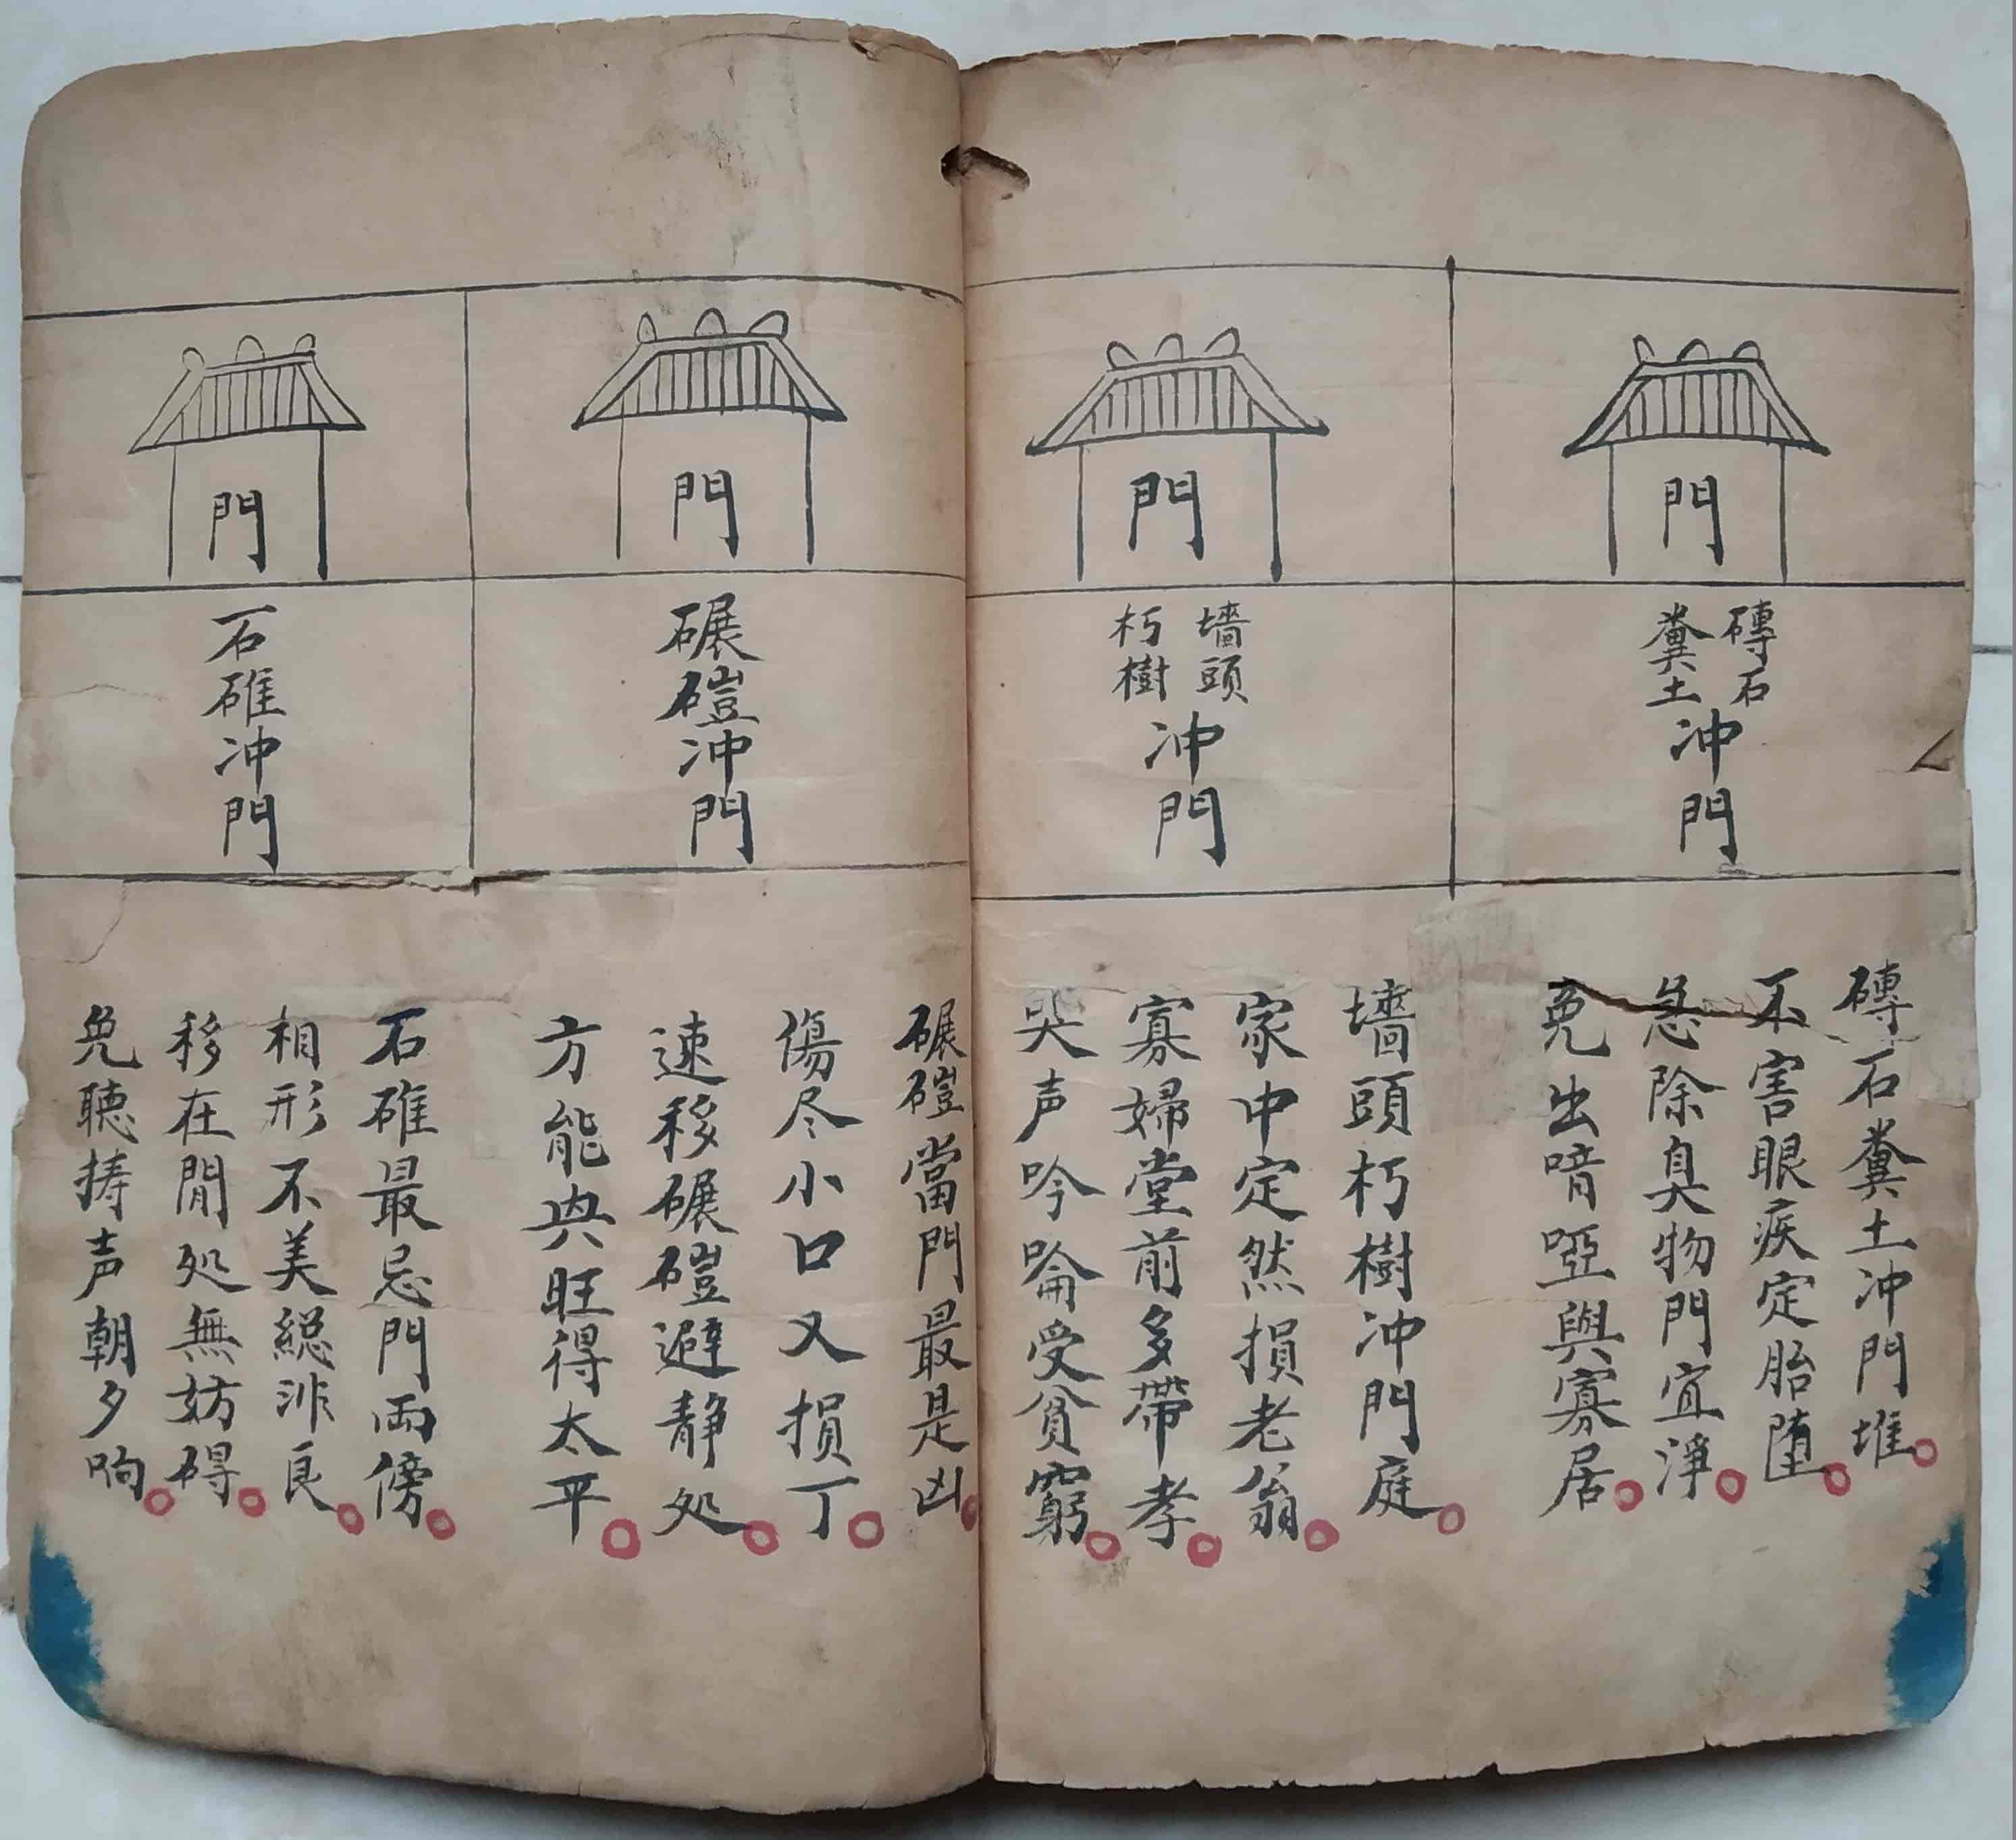 門
磚石
糞土
冲門
磚石糞土冲門堆
不害眼疾定胎堕
急除臭物門宜淨
免出喑啞與寡居
門
墻頭
朽樹
冲門
墻頭朽樹冲門庭
家中定然損老翁
寡婦堂前多帶孝
哭声吟喻受貧窮
門
碾磑冲門
碾磑當門最是凶
傷尽小口又損丁
速移碾磑避静処
方能興旺得太平
門
石碓冲門
石碓最忌門両傍
相形不美総非良
移在閒処無妨碍
免聴擣声朝夕响